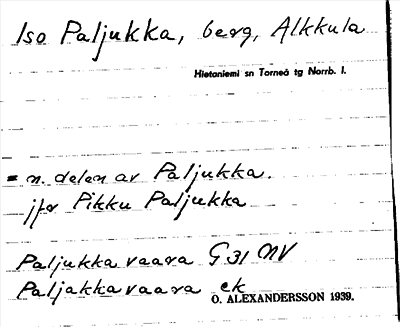 Iso Paljukka, berg, Alkkula
Hietaniemi sn Torneå tg Norrb. l.
= n. delen av Paljukka.
jfr Pikku Paljukka
Paljukkavaara G 31 NV
Paljakkavaara ek
O. ALEXANDERSSON 1939.